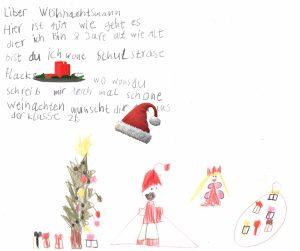 Liber Weihnachtsmann
Hier ist wie geht es
dier ich Bin 8 Jare alt wie Alt
bist du ich wone Schulstrase
Flacke wo wonsdu
schreib mir doch mal schöne
weihnachten wünscht dir aus
der klasse 2t